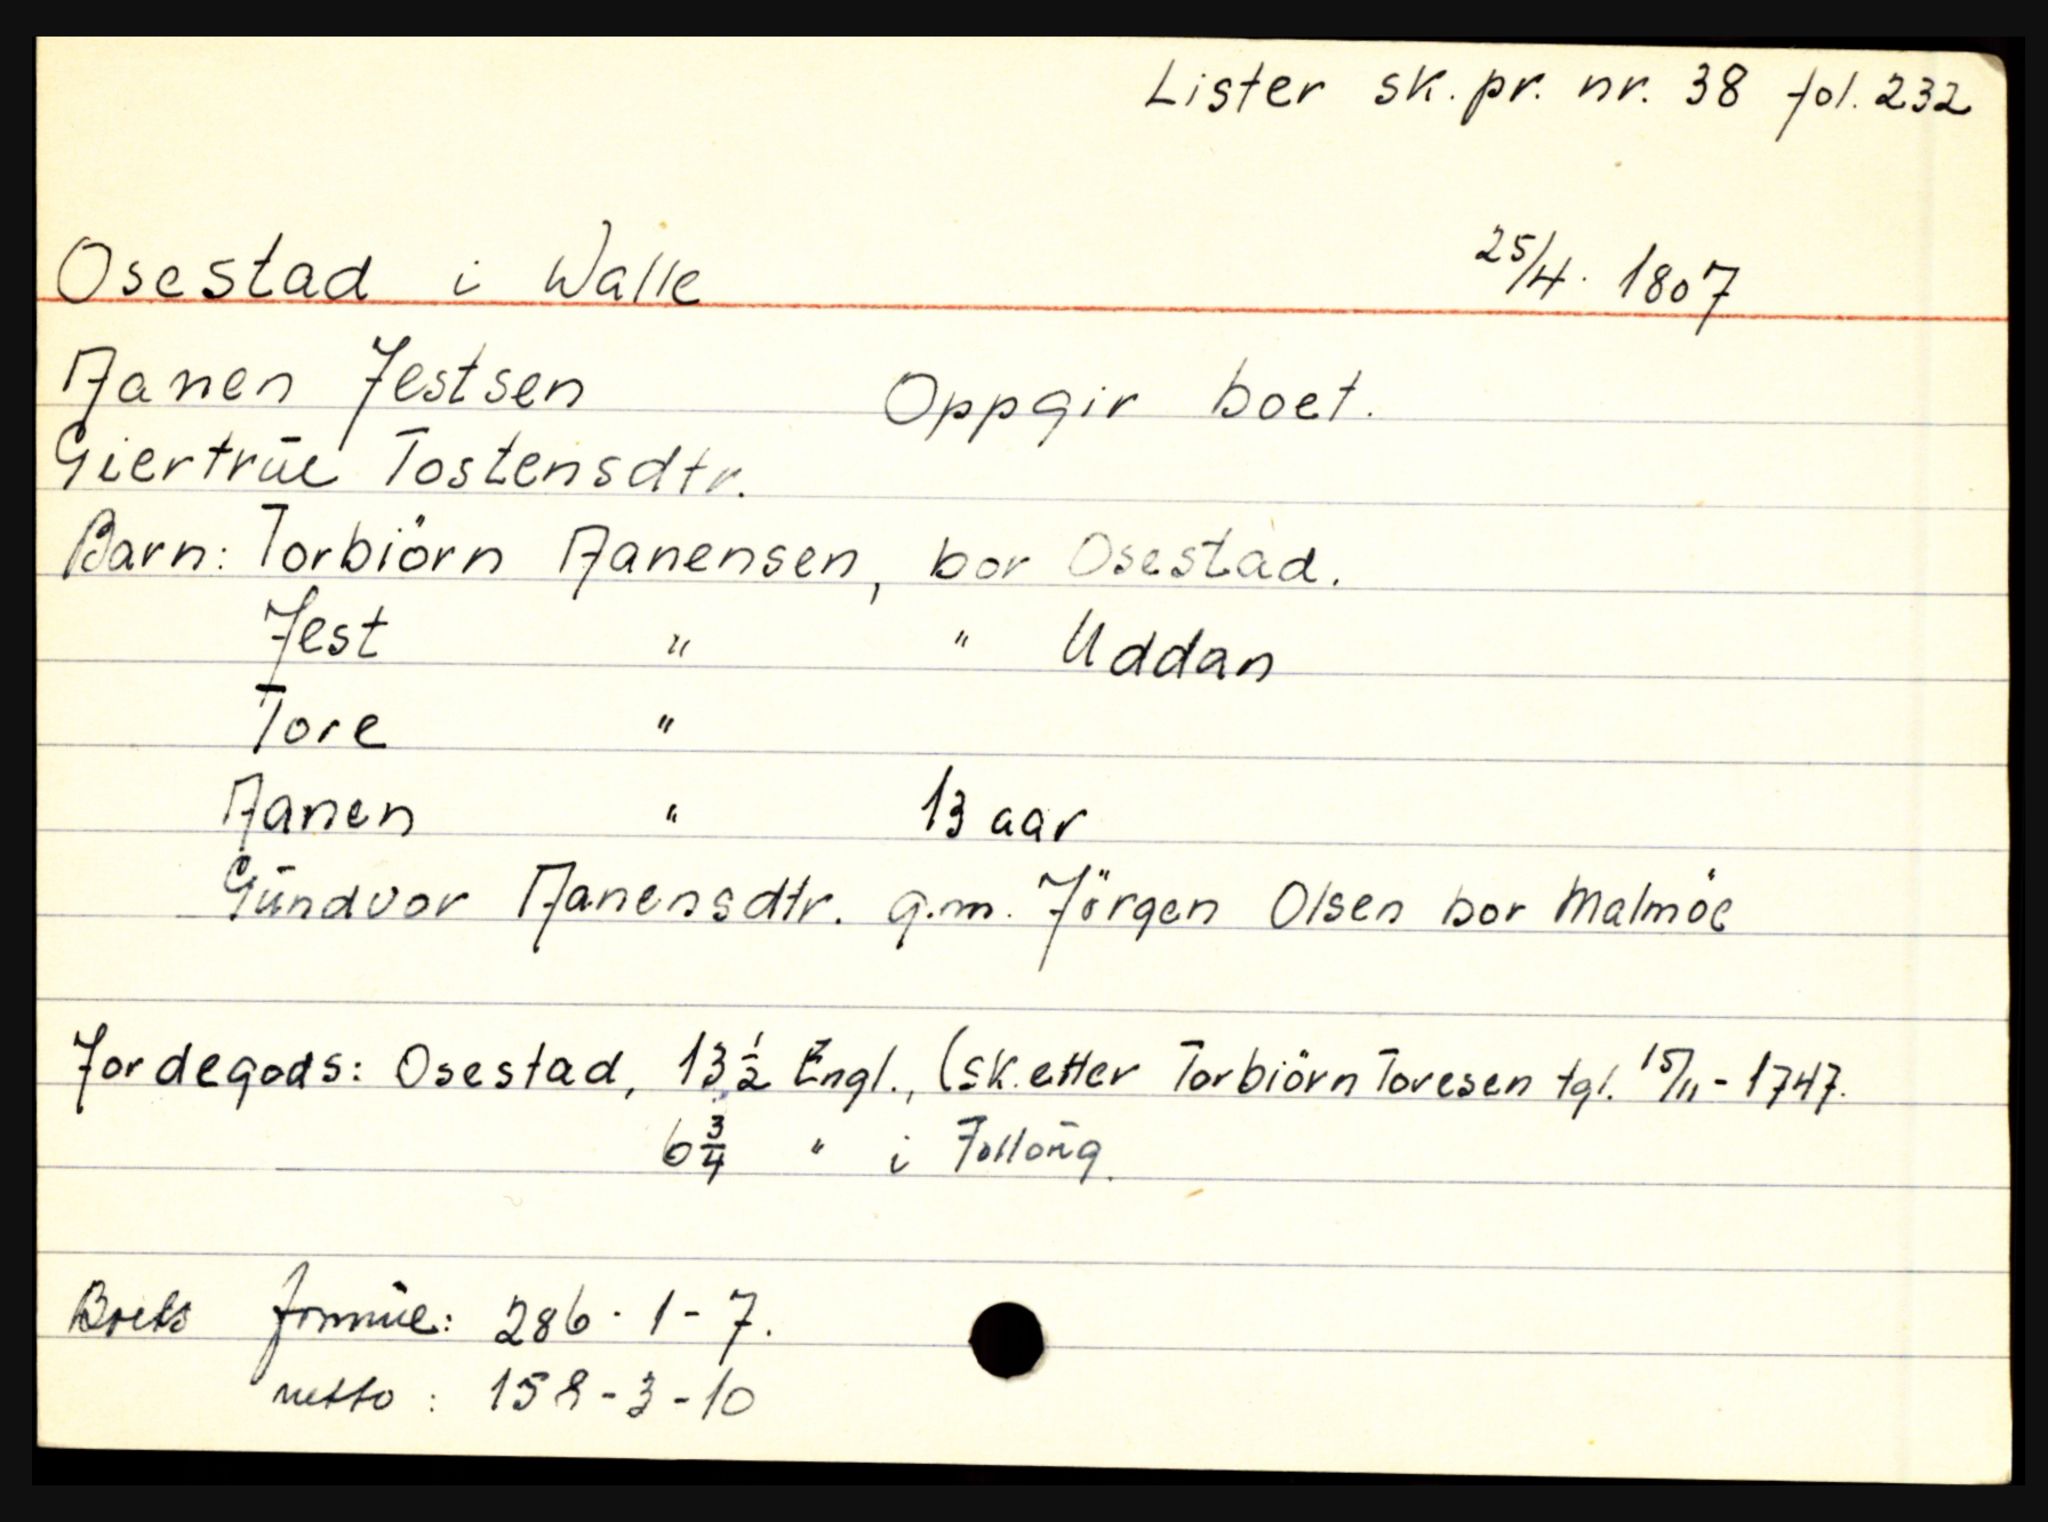 Lister sk. pr. nr. 38 fol. 232
Osestad i Walle 25/4. 1807
Aanen Jestsen Oppgir boet.
Giertrūe Tostensdtr.
Barn: Torbiörn Aanensen, bor Osestad.
Jest " " Uddan
Tore "
Aanen " 13 aar
Gūndvor Aanensdtr. g.m. Jörgen Olsen bor Malmöe
Jordegods: Osestad, 13 1/2 Engl., (sk. etter Torbiörn Toresen tgl. 15/11 - 1747.
6 3/4 " i
Boets formūe: 286 - 1 - 7.
netto: 158 - 3 - 10